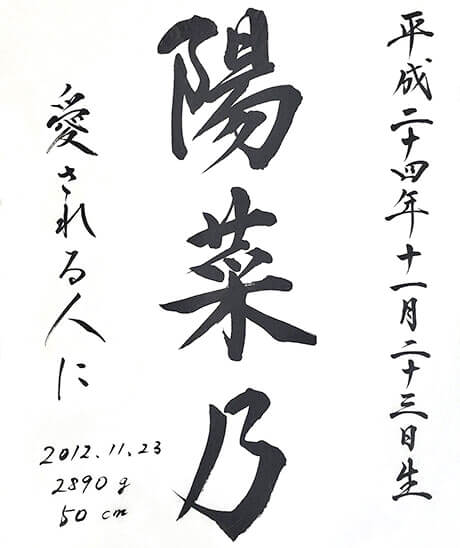 平成二十四年十一月二十三日生
陽菜乃
愛される人に
2012.11.23
2890g
50cm